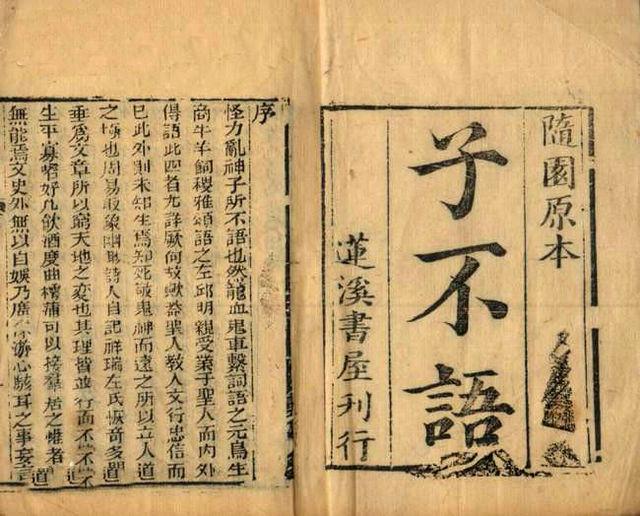 隨園原本
子不語
蓮溪書屋刊行
序
怪力亂神子所不語也然龍血鬼車繫詞語之元鳥生
商牛羊飼稷雅頌語之左邱明親受業于聖人而內外
傳語此四者尤詳厥何故歟葢聖人教人文行忠信而
已此外則未知生焉知死敬鬼神而遠之所以立人道
之極也周易取象幽眇詩人自記祥瑞左氏恢奇多
垂爲文章所以窮天地之変也其理皆並行而不
生平寡嗜好凡飲酒度曲樗蒲可以接羣居之懽者
無能焉文史外無以自娛乃廣游心駭耳之事妄言